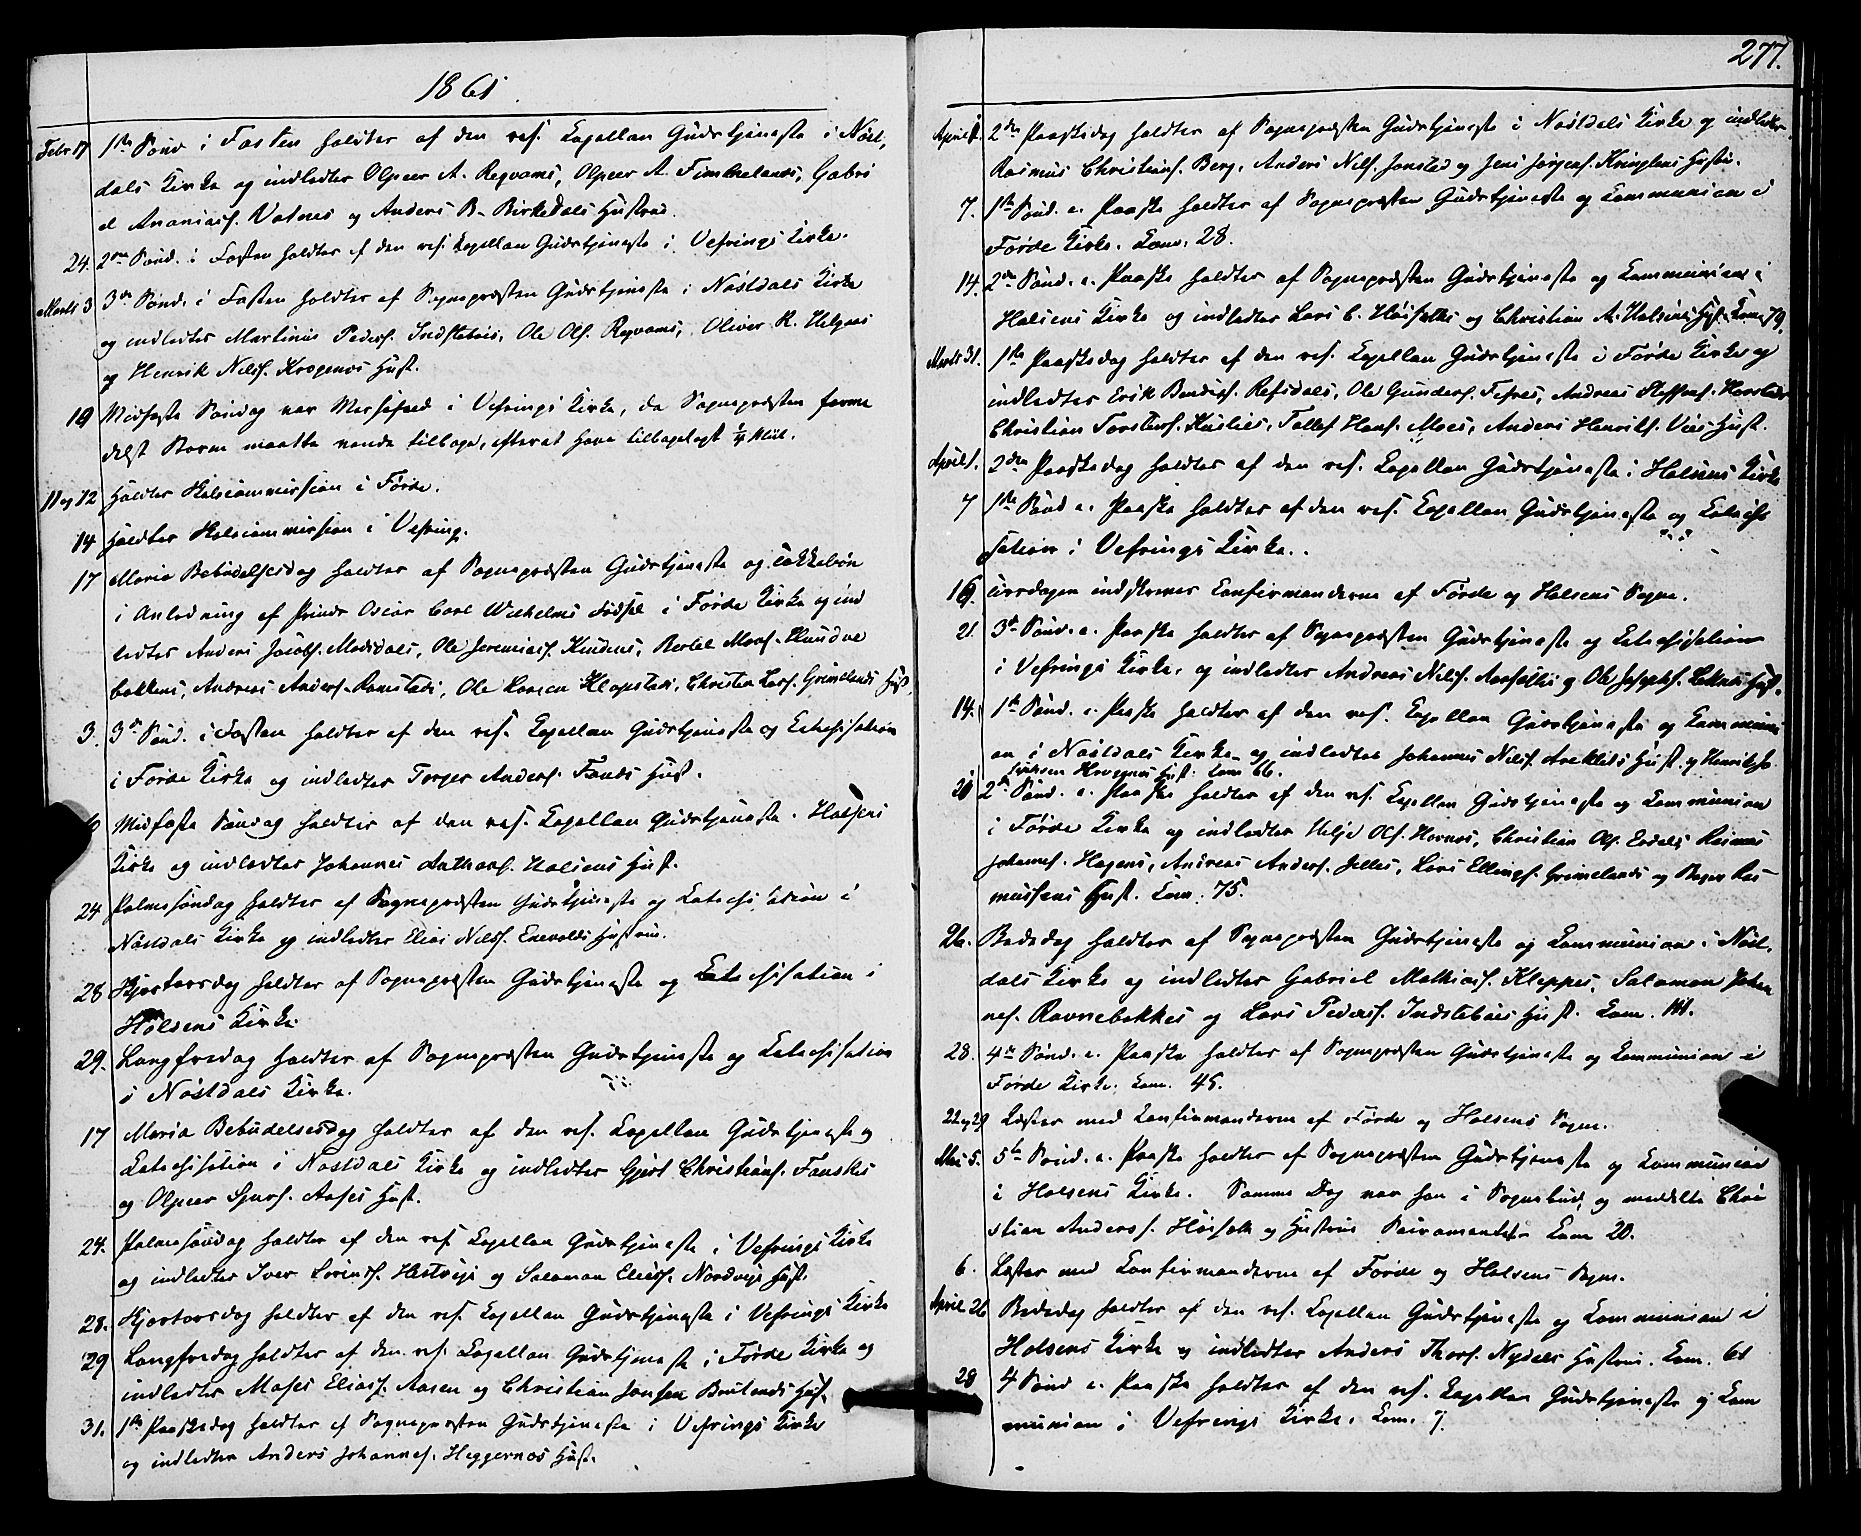 1861
Febr 17 1ste Sönd i Fasten holdtes af den res. Capellan Gudstjeneste i Nöst,
dals Kirke og indledtes Olpeer A. Reqvams, Olpeer A. Timhelands, Gabri
el Ananiass. Votnes og Anders B. Birkedals Hustrue.
24. 2den Sönd. i Fasten holdtes af den res. Capellan Gudstjeneste i Vefrings Kirke.
Marts 3 3die Sönd. i Fasten holdtes af Sognepræsten Gudstjeneste i Nöstdals Kirke
og indledtes Martinus Peders. Indstebös, Ole Ols. Reqvams, Oliver R. Helgaas
og Henrik Nilss. Krogenes Hust.
10 Midfaste Söndag var Messefald i Vefrings Kirke, da Sognepræsten forme
delst Storm maatte vende tilbage, efterat have tilbagelagt 1/4 Miil.
11 og 12 Holdtes Skolecommission i Förde.
14 Holdtes Skolecommission i Vefring.
17 Maria Bebudelsesdag holdtes af Sognepræsten Gudstjeneste og Takkebön
i Anledning af Prinds Oscar Carl Wilhelms Födsel i Förde Kirke og ind
ledtes Anders Jacobs. Modsdals, Ole Jeremiass. Hindens, Bertel Mons. Strandne
bakkens, Andreas Anders. Ramstads, Ole Larsen Klopstads, Christen Lars. Grimelands Hust.
3. 3die Sönd. i Fasten holdtes af den res. Capellan Gudstjeneste og Catechisation
i Förde Kirke og indledtes Torger Anders. Fonds Hust.
10 Midfaste Söndag holdtes af den res. Capellan Gudstjeneste i Holsens
Kirke og indledtes Johannes Anthons. Holsens Hust.
24 Palmesöndag holdtes af Sognepræsten Gudstjeneste og Catechisation i
Nöstdals Kirke og indledtes Elias Nilss. Enevolds Hustrue.
28 Skjertorsdag holdtes af Sognepræsten Gudstjeneste og Catechisation i
Holsens Kirke.
29. Langfredag holdtes af Sognepræsten Gudstjeneste og Catechisation
i Nöstdals Kirke.
17 Maria Bebudelsesdag holdtes af den res. Capellan Gudstjeneste og
Catechisation i Nöstdals Kirke og indledtes Gjert Christians. Fanskes
og Olpeer Sjurs. Aases Hust.
24. Palmesöndag holdtes af den res. Capellan Gudstjeneste i Vefrings Kirke
og indledtes Iver Sörenss. Hestvigs og Salamon Eliass. Nordvigs Hust.
28. Skjertorsdag holdtes af den res. Capellan Gudstjeneste i Vefrings Kirke
29 Langfredag holdtes af den res. Capellan Gudstjeneste i Förde Kirke og
indledtes Moses Eliass. Aasen og Christian Jonsen Brulands Hust.
31. 1ste Paaskedag holdtes af Sognepræsten Gudstjeneste i Vefrings Kirke
og indledtes Anders Johannes. Heggernes Hust.
277.
April 1. 2den Paaskedag holdtes af Sognepræsten Gudstjeneste i Nöstdals Kirke og indledtes
Rasmus Christians. Berg, Anders Nils. Jonstad og Jens Jörgens. Kringlens Hustr.
7. 1ste Sönd. e. Paaske holdtes af Sognepræsten Gudstjeneste og Communion i
Förde Kirke. Com. 28.
14. 2den Sönd. e. Paaske holdtes af Sognepræsten Gudstjeneste og Communion i
Holsens Kirke og indledtes Lars C. Höifalls og Christian A. Holsens Hust. Com. 79.
Marts 31. 1ste Paaskedag holdtes af den res. Capellan Gudstjeneste i Förde Kirke og
indledtes Erik Bendiss. Refsdals, Ole Gunders. Tefres, Andreas Steffens. Horstads
Christian Torstens. Huslies, Tollef Hans. Moes, Anders Henriks. Vies Hust.
April 1. 2den Paaskedag holdtes af den res. Capellan Gudstjeneste i Holsens Kirke
7 1ste Sönd e. Paaske holdtes af den res. Capellan Gudstjeneste og Catechi
sation i Vefrings Kirke.
16. Tirsdagen indskreves Confirmanderne af Förde og Holsens Sogne.
21. 3die Sönd. e. Paaske holdtes af Sognepræsten Gudstjeneste og Catechisation
i Vefrings Kirke, og indledtes Andreas Nils. og Ole Josephs. Hust.
14. 1ste Sönd. e. Paaske holdtes af den res. Capellan Gudstjeneste og Communi
on i Nöstdals Kirke og indledtes Johannes Nils. Areklets Hust. og Henrik
Hovenes Hust. Com. 66.
21 2den Sönd. e. Paaske holdtes af den res. Capellan Gudstjeneste og Communion
i Förde Kirke og indledtes Helje Ols. Hornes, Christian Ols. Erdals, Rasmus
Johannes. Hagens, Andreas Anders. Jelles, Lars Ellings. Grimelands og Ras-
mussens Hust. Com. 75.
26. Bededag holdtes af Sognepræsten Gudstjeneste og Communion i Nöst,
dals Kirke og indledtes Gabriel Mathias. Kleppes, Salamon Johan
nes. Ravnebakkes og Lars Peders. Indstebös Hust. Com. 111.
28. 4de Sönd. e. Paaske holdtes af Sognepræsten Gudstjeneste og Communion i
Förde Kirke. Com. 45.
22 og 29 Læstes med Confirmanderne af Förde og Holsens Sogne.
Mai 5. 5te Sönd. e. Paaske holdtes af Sognepræsten Gudstjeneste og Communion
i Holsens Kirke. Samme Dag var han i Sognebud, og meddelte Chri
stian Anderss. Höifalls og Hustrue Sacramentet. Com. 20.
6. Læstes med Confirmanderne af Förde og Holsens Sogne.
April 26 Bededag holdtes af den res. Capellan Gudstjeneste og Communion i
Holsens Kirke og indledtes Anders Thors. Nydals Hustrue. Com. 61
28 4 Sönd e. Paaske holdtes af den res. Capellan Gudstjeneste og Com
munion i Vefrings Kirke. Com. 7.